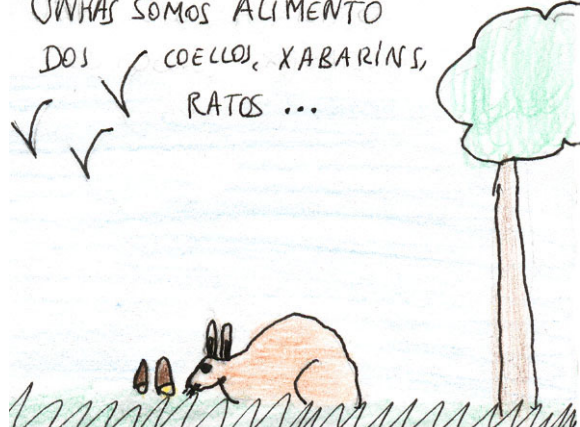 UNHAS SOMOS ALIMENTO
DOS COELLOS, XABARÍNS,
RATOS ...